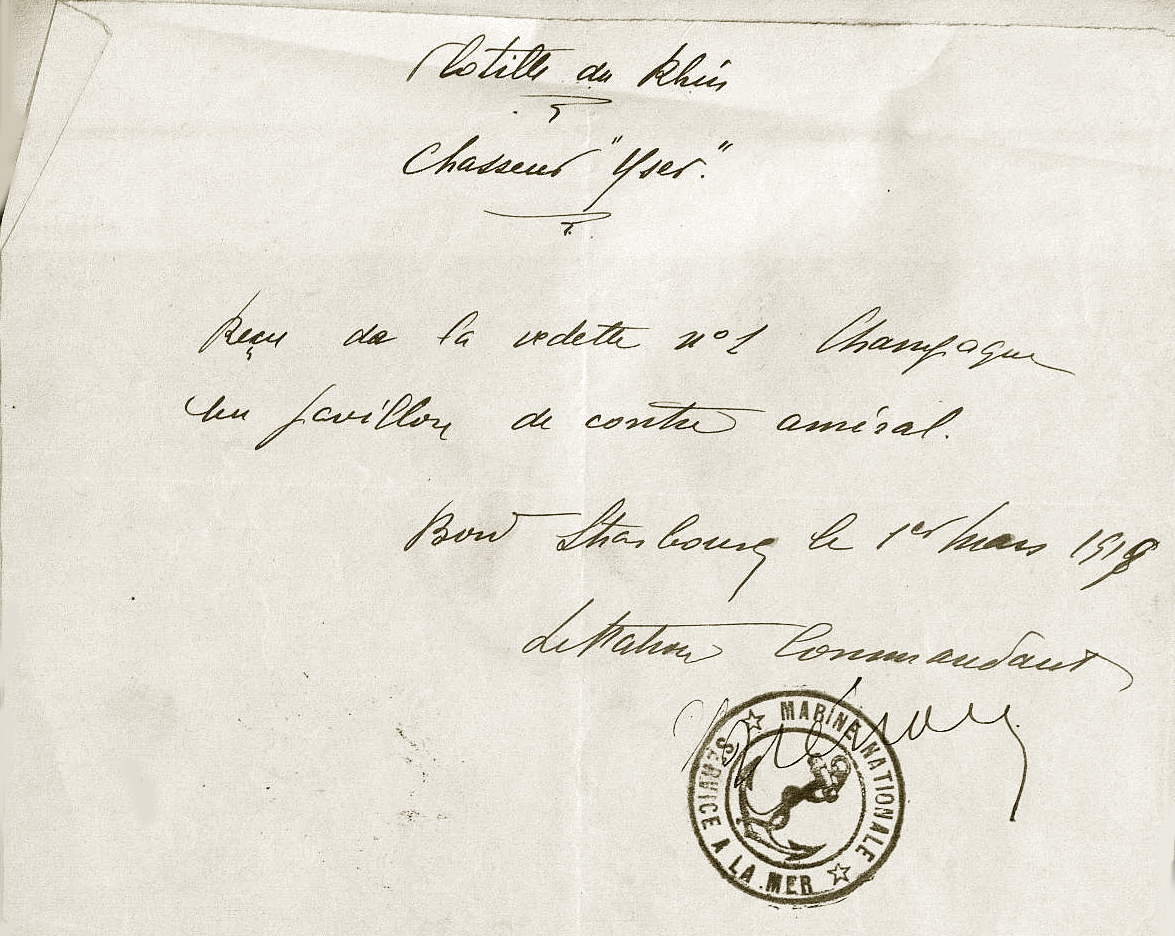 Flotille du Rhin
Chasseur "Yser".
Reçu de la vedette n° 1 Champagne
un pavillon de contre amiral.
Bord Strasbourg le 1er Mars 1919
Le Patron Commandant
MARINE NATIONALE
SERVICE A LA MER